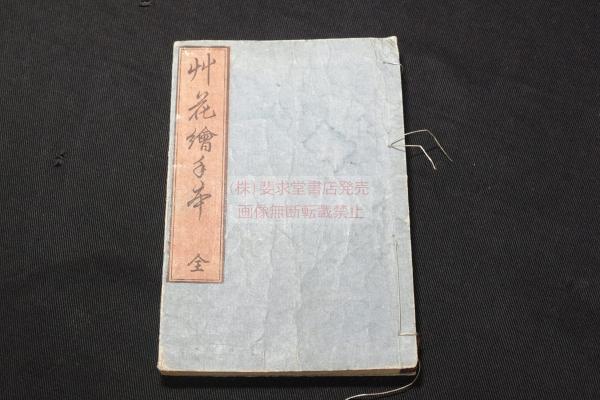 艸花繪手本 全
(株)斐求堂書店発売
画像無断転載禁止